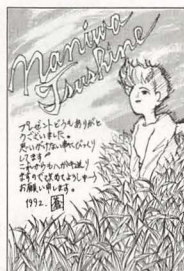 Naniwa
Tsushine
プレゼントどうもありがと
うございました。
思いがけない事でびっくり
してます
これからもハガキ送り
ますので改めてよろしゅ〜う
お願い申します。
1992.